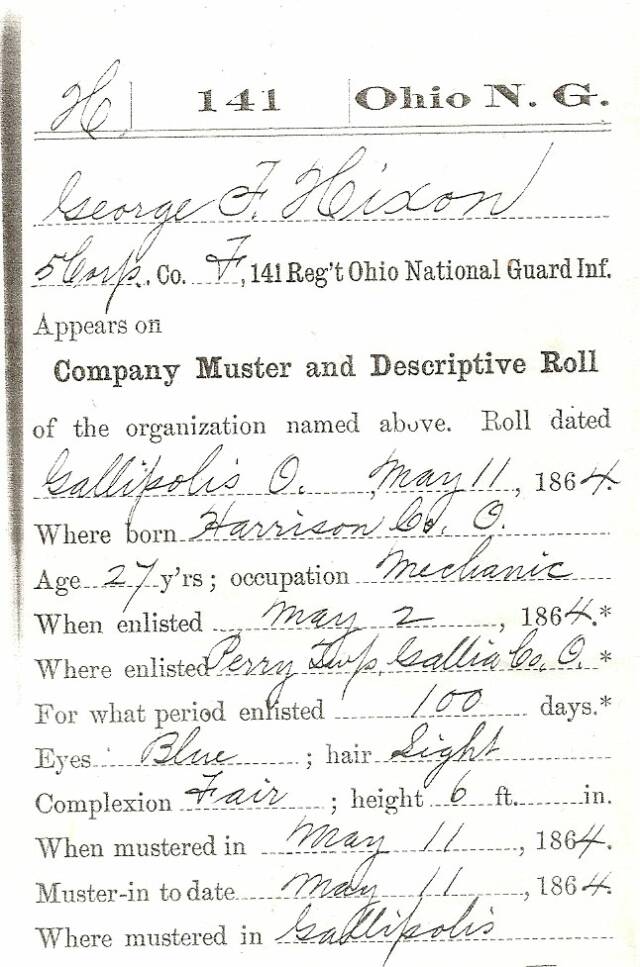 H 141 Ohio N. G.
George F. Hixon
5 Corp., Co. F, 141 Reg't Ohio National Guard Inf.
Appears on
Company Muster and Descriptive Roll
of the organization named above. Roll dated
Gallipolis O., May 11, 1864.
Where born Harrison Co. O.
Age 27 y'rs; occupation Mechanic
When enlisted May 2, 1864.*
Where enlisted Perry Twp, Gallia Co, O. *
For what period enlisted 100 days.*
Eyes Blue; hair Light
Complexion Fair; height 6 ft. in.
When mustered in May 11, 1864.
Muster-in to date May 11, 1864.
Where mustered in Gallipolis